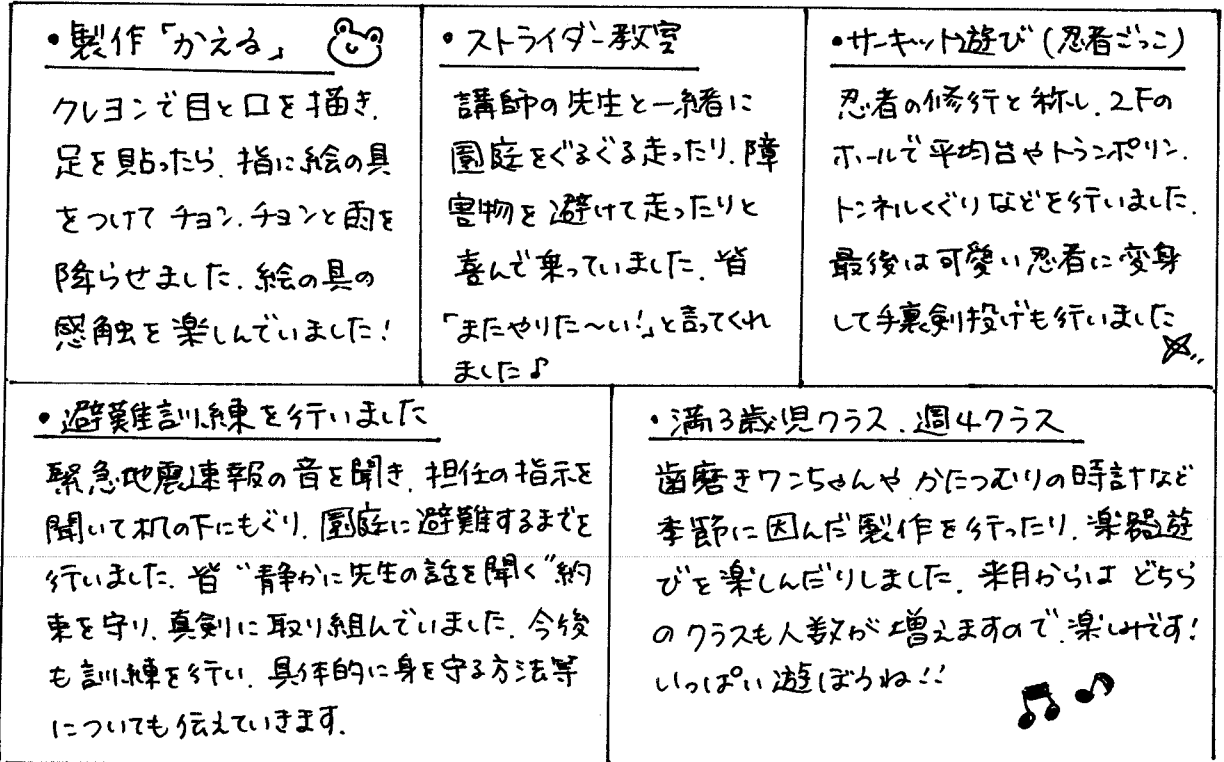 ・製作「かえる」
クレヨンで目と口を描き、
足を貼ったら、指に絵の具
をつけてチョン、チョンと雨を
降らせました。絵の具の
感触を楽しんでいました!
・ストライダー教室
講師の先生と一緒に
園庭をぐるぐる走ったり、障
害物を避けて走ったりと
喜んで乗っていました。皆
「またやりた〜い!」と言ってくれ
ました♪
・サーキット遊び(忍者ごっこ)
忍者の修行と称し、2Fの
ホールで平均台やトランポリン、
トンネルくぐりなどを行いました。
最後は可愛い忍者に変身
して手裏剣投げも行いました
・避難訓練を行いました
緊急地震速報の音を聞き、担任の指示を
聞いて机の下にもぐり、園庭に避難するまでを
行いました。皆〝静かに先生の話を聞く〟約
束を守り、真剣に取り組んでいました。今後
も訓練を行い、具体的に身を守る方法等
についても伝えていきます。
・満3歳児クラス、週4クラス
歯磨きワンちゃんやかたつむりの時計など
季節に因んだ製作を行ったり、楽器遊
びを楽しんだりしました。来月からはどちら
のクラスも人数が増えますので、楽しみです!
いっぱい遊ぼうね!!